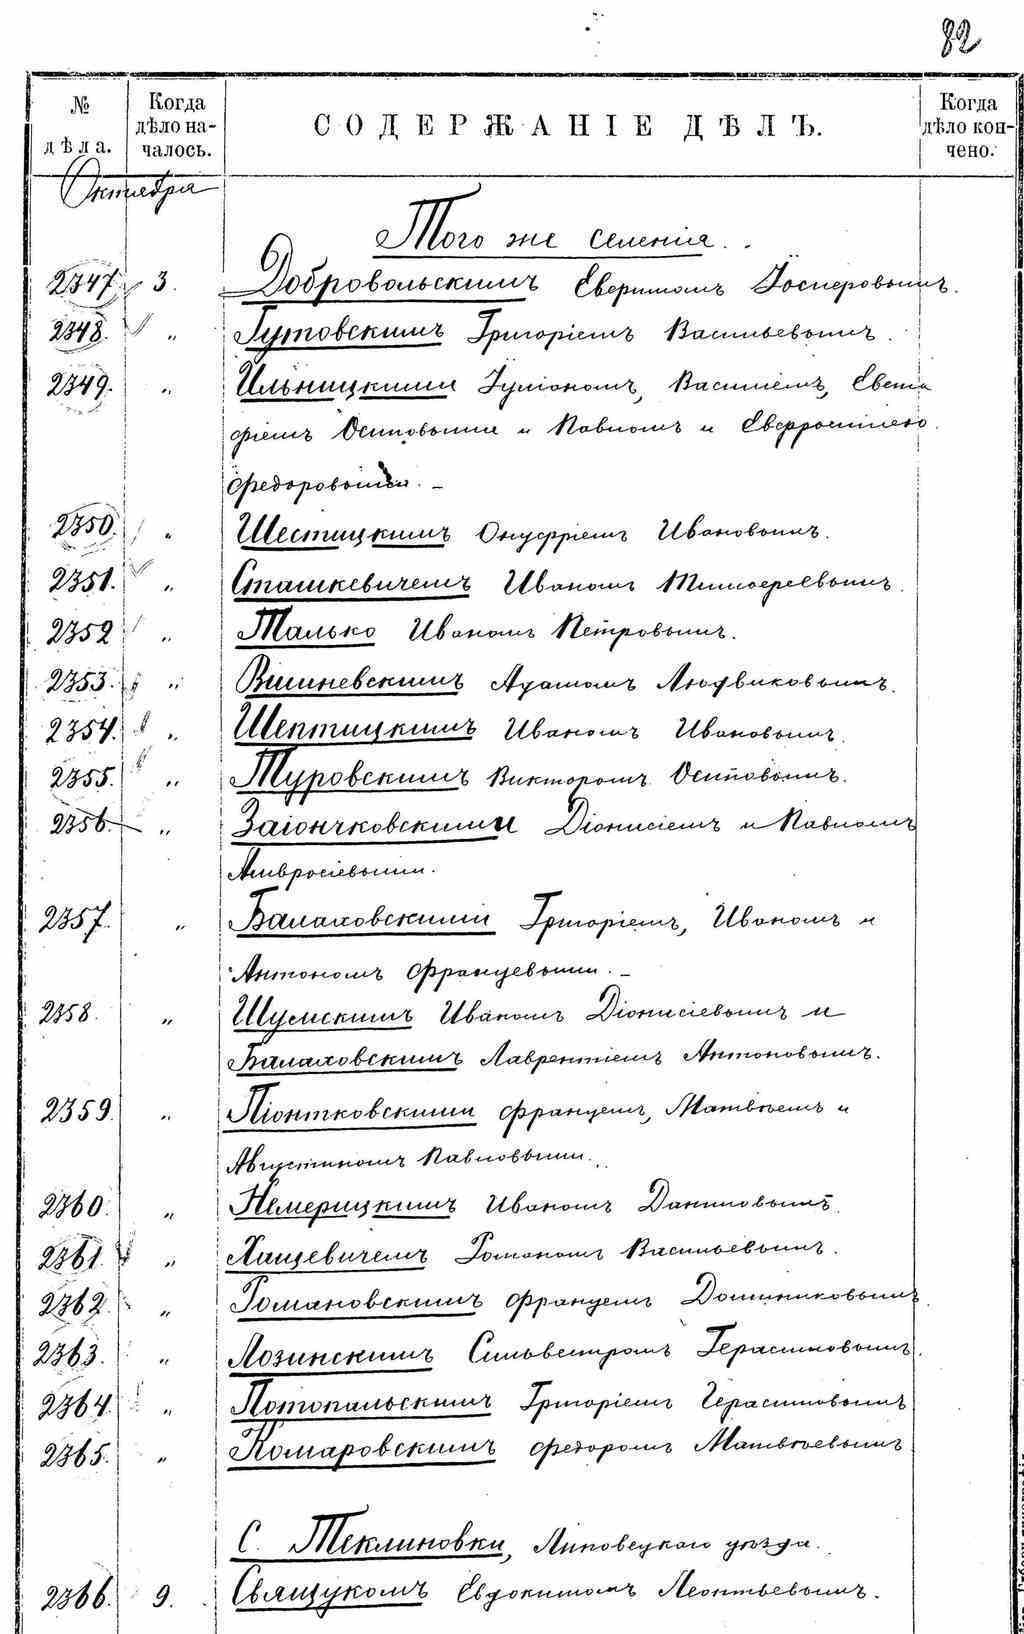 82
№ дѣла. Когда дѣло началось. СОДЕРЖАНІЕ ДѢЛЪ. Когда дѣло кончено.
Октября
Того же селенія.
2347. 3. Добровольскимъ Іосиф­овымъ.
2348. „ Гутовскимъ Григоріемъ Васильевымъ.
2349. „ Ильницкими Іуліаномъ, Василіемъ, Евста
фіемъ Осиповыми и Павломъ и
Федоровыми. —
2350. „ Шестицкимъ Онуфріемъ Ивановымъ.
2351. „ Сташкевичемъ Иваномъ Тимофеевымъ.
2352 „ Малько Иваномъ Петровымъ.
2353. „ Вишневскимъ Адамомъ Людвиковымъ.
2354. „ Шептицкимъ Иваномъ Ивановымъ.
2355. „ Туровскимъ Викторомъ Осиповымъ.
2356. „ Заіончковскими Діонисіемъ и Павломъ
Амвросіевыми.
2357. „ Балаховскими Григоріемъ, Иваномъ и
Антономъ Францевыми. —
2358. „ Шумскимъ Иваномъ Діонисіевымъ и
Балаховскимъ Лаврентіемъ Антоновымъ.
2359. „ Піонтковскими Францемъ, Матвѣемъ и
Августиномъ Павловыми.
2360. „ Немерицкимъ Иваномъ Даниловымъ.
2361. „ Хащевичемъ Романомъ Васильевымъ.
2362. „ Романовскимъ Францемъ Доминиковымъ.
2363. „ Лозинскимъ Сильвестромъ Герасимовымъ.
2364. „ Потопальскимъ Григоріемъ Герасимовымъ
2365. „ Комаровскимъ Федоромъ Матвѣевымъ
С. Теклиновки, Липовецкаго уѣзда.
2366. 9. Свящукомъ Евдокимомъ Леонтьевымъ.